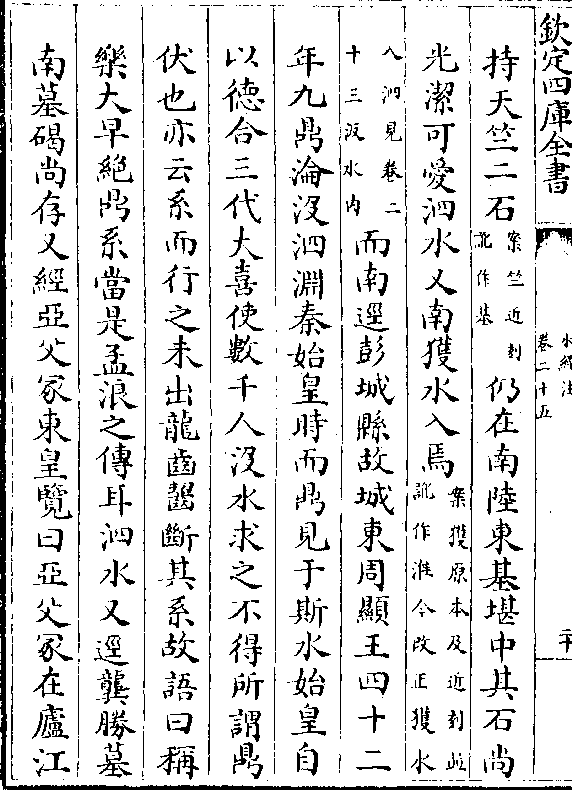 欽定四庫全書
水經注
卷二十五
二十
持天竺二石案竺近刻訛作基仍在南陸東基堪中其石尚
光潔可愛泗水又南獲水入焉案獲原本及近刻並訛作淮今改正獲水
入泗見卷二十三汳水内而南逕彭城縣故城東周顯王四十二
年九鼎淪沒泗淵秦始皇時而鼎見于斯水始皇自
以德合三代大喜使數千人沒水求之不得所謂鼎
伏也亦云系而行之未出龍齒齧斷其系故語曰稱
樂大早絶鼎系當是孟浪之傳耳泗水又逕龔勝墓
南墓碣尚存又經亞父冢東皇覽曰亞父冢在廬江